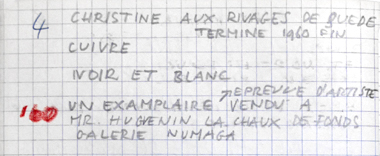 4 CHRISTINE AUX RIVAGES DE SUEDE
TERMINE 1960 FIN
CUIVRE
NOIR ET BLANC
EPREUVE D'ARTISTE
160 UN EXAMPLAIRE VENDU A
MR. HUGUENIN LA CHAUX DE FONDS
GALERIE NUMAGA